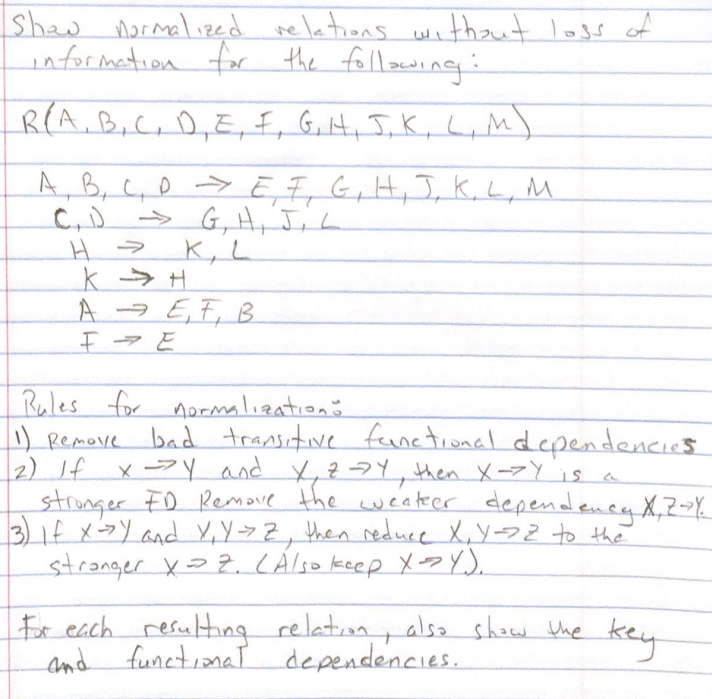 Show normalized relations without loss of
information for the following:
R(A, B, C, D, E, F, G, H, J, K, L, M)
A, B, C, D → E, F, G, H, J, K, L, M
C, D → G, H, J, L
H → K, L
K → H
A → E, F, B
F → E
Rules for normalization:
1) Remove bad transitive functional dependencies
2) If X → Y and X, Z → Y, then X → Y is a
stronger FD Remove the weaker dependency X, Z → Y.
3) If X → Y and X, Y → Z, then reduce X, Y → Z to the
stronger X → Z. (Also keep X → Y).
For each resulting relation, also show the key
and functional dependencies.